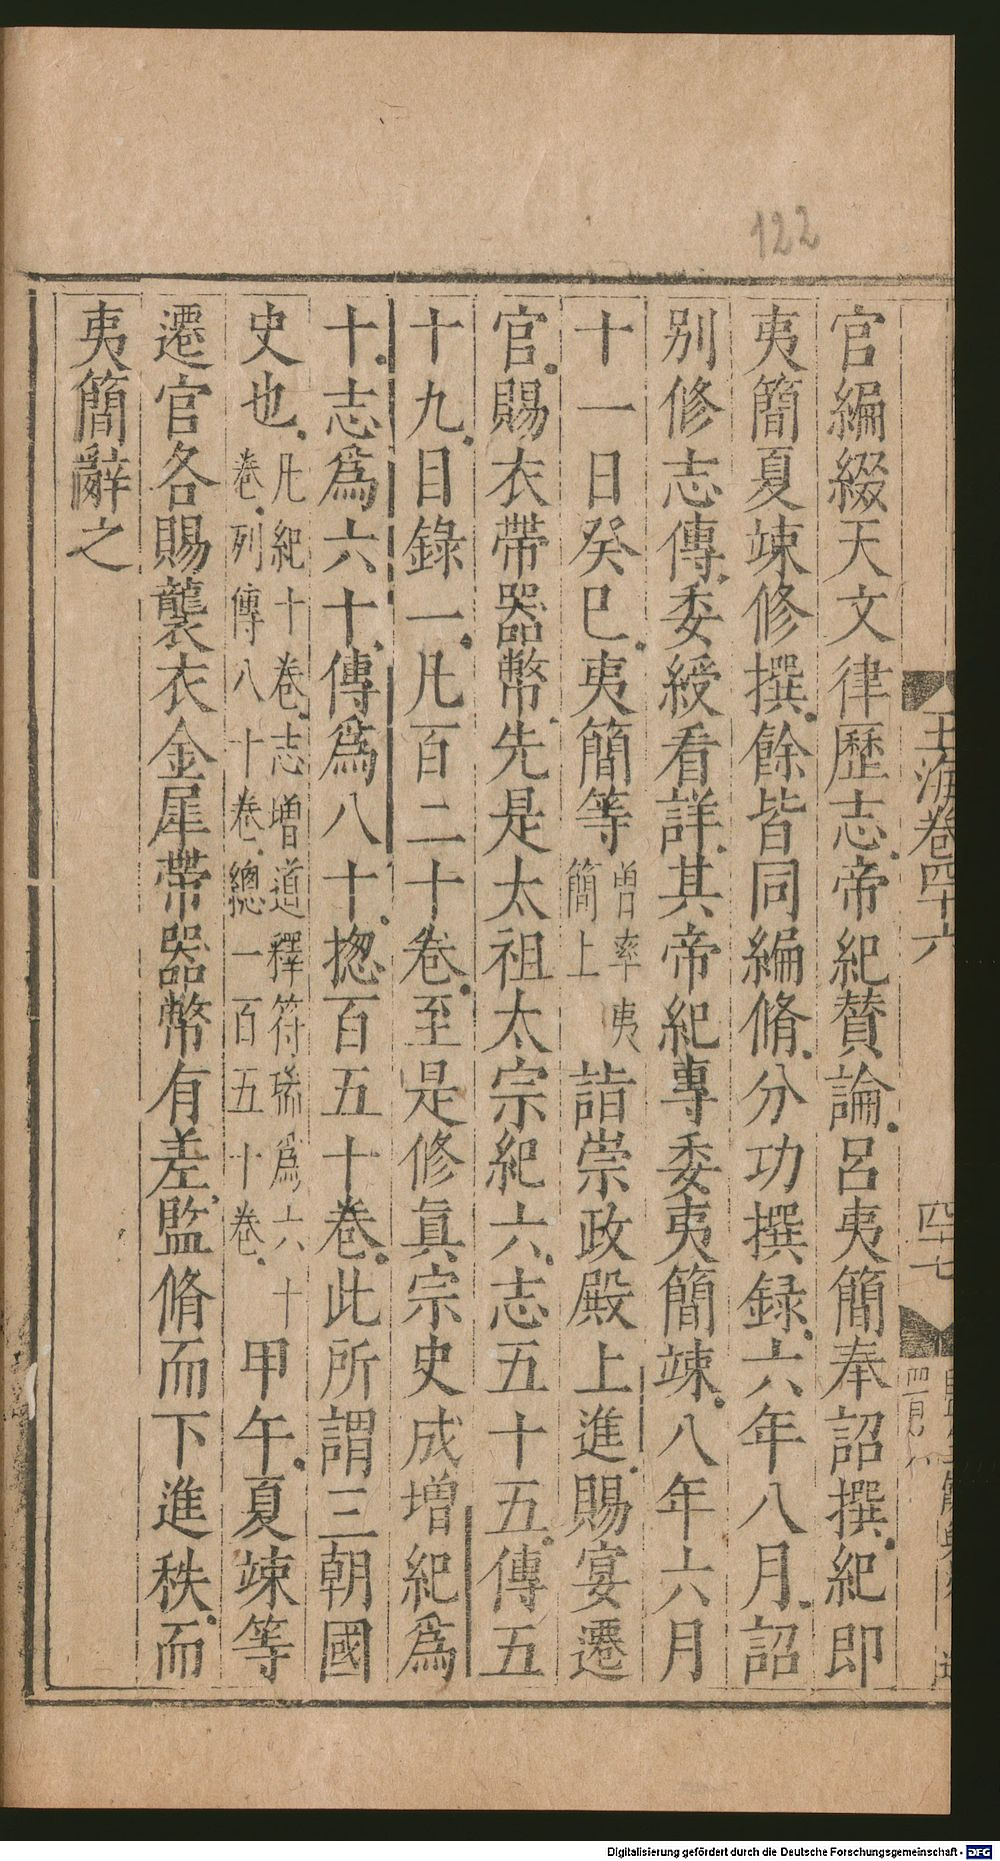 122
玉海卷四十六
四十七
官編綴天文律歷志帝紀賛論呂夷簡奉詔撰紀即
夷簡夏竦修撰餘皆同編脩分功撰録六年八月詔
别修志傳委綬看詳其帝紀專委夷簡竦八年六月
十一日癸巳夷簡等曽率夷簡上詣崇政殿上進賜宴遷
官賜衣帶器幣先是太祖太宗紀六志五十五傳五
十九目錄一凡百二十卷至是修眞宗史成增紀爲
十志爲六十傳爲八十揔百五十卷此所謂三朝國
史也凡紀十卷志増道釋符瑞爲六十卷列傳八十卷總一百五十卷甲午夏竦等
遷官各賜襲衣金犀帶器幣有差監脩而下進秩而
夷簡辭之
Digitalisierung gefördert durch die Deutsche Forschungsgemeinschaft - DFG